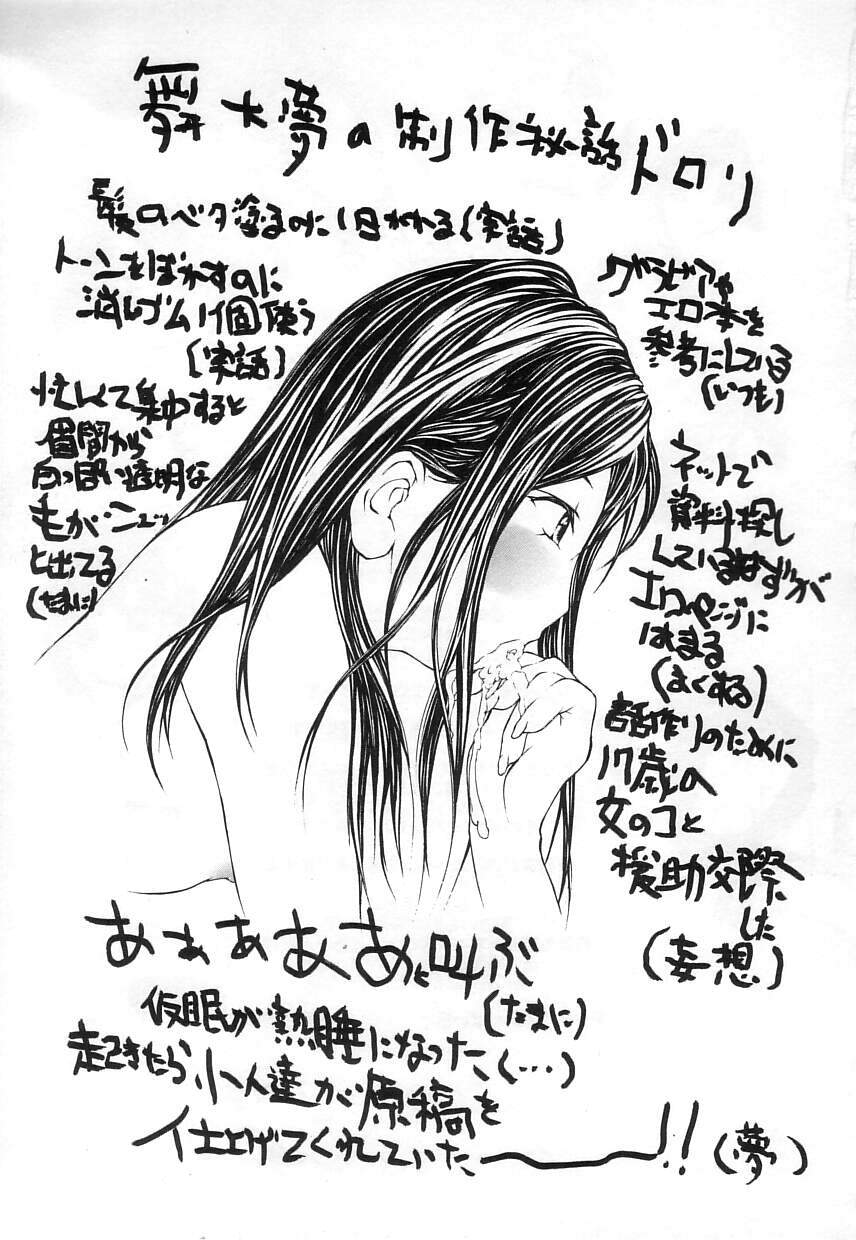 舞大夢の制作秘話ドロリ
髪のベタ塗るのに1日かかる(実話)
トーンをぼかすのに
消しゴム1個使う
(実話)
忙しくて集中すると
眉間から
白っぽい透明な
毛がニュッ
と出てる
(たまに)
グラビアや
エロ本を
参考にしている
(いつも)
ネットで
資料探し
しているはずが
エロページに
はまる
(よくする)
話作りのために
17歳の
女のコと
援助交際
した
(妄想)
あぁぁぁあと叫ぶ
(たまに)
仮眠が熱睡になった(…)
起きたら小人達が原稿を
仕上げてくれていたーー!!(夢)